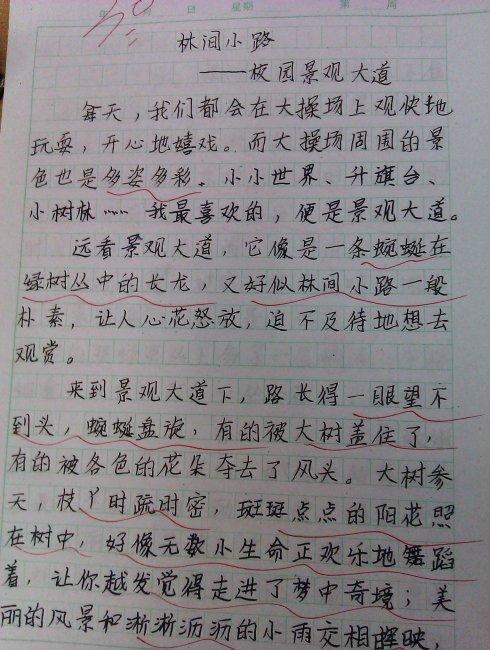 年 月 日 星期 第 周
林间小路
——校园景观大道
每天，我们都会在大操场上欢快地
玩耍，开心地嬉戏。而大操场周围的景
色也是多姿多彩。小小世界、升旗台、
小树林…… 我最喜欢的，便是景观大道。
远看景观大道，它像是一条蜿蜒在
绿树丛中的长龙，又好似林间小路一般
朴素，让人心花怒放，迫不及待地想去
观赏。
来到景观大道下，路长得一眼望不
到头，蜿蜒盘旋，有的被大树盖住了，
有的被各色的花朵夺去了风头。大树参
天，枝丫时疏时密，斑斑点点的阳花照
在树中，好像无数小生命正欢乐地舞蹈
着，让你越发觉得走进了梦中奇境；美
丽的风景和淅淅沥沥的小雨交相辉映，